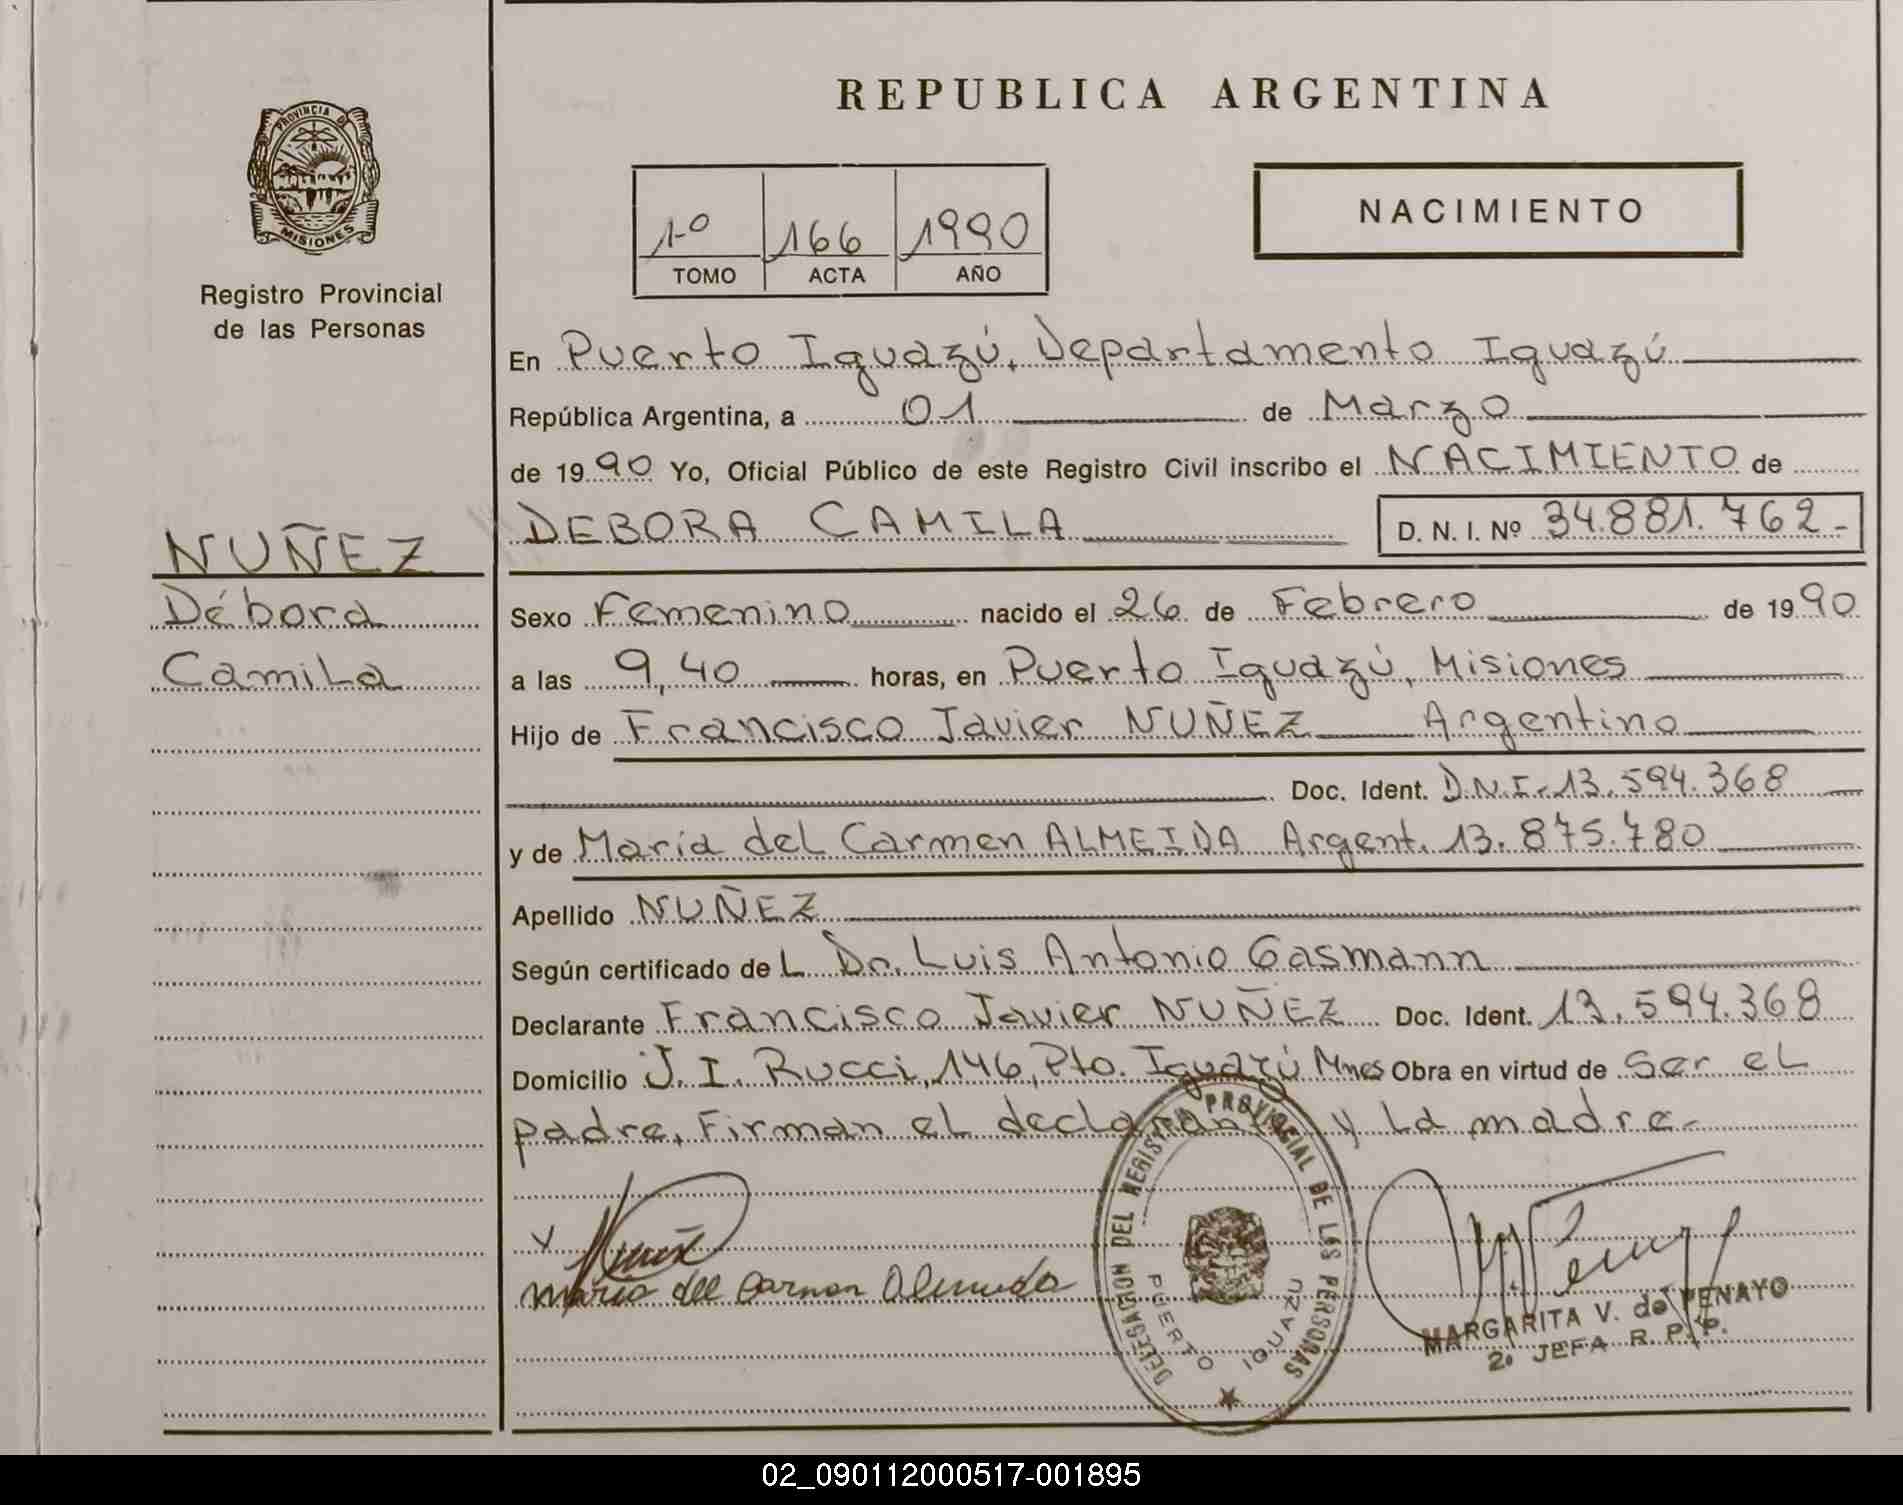 REPUBLICA ARGENTINA
PROVINCIA DE
MISIONES
Registro Provincial
de las Personas
1º 166 1990
TOMO ACTA AÑO
NACIMIENTO
En Puerto Iguazú, Departamento Iguazú
República Argentina, a 01 de Marzo
de 1990 Yo, Oficial Público de este Registro Civil inscribo el NACIMIENTO de
DEBORA CAMILA D. N. I. Nº 34.881.762-
NUÑEZ
Débora
Camila
Sexo Femenino nacido el 26 de Febrero de 1990
a las 9,40 horas, en Puerto Iguazú, Misiones
Hijo de Francisco Javier NUÑEZ Argentino
Doc. Ident. D.N.I. 13.594.368
y de María del Carmen ALMEIDA Argent. 13.875.780
Apellido NUÑEZ
Según certificado del Dr. Luis Antonio Gasmann
Declarante Francisco Javier NUÑEZ Doc. Ident. 13.594.368
Domicilio J. I. Rucci, 146, Pto. Iguazú Mnes Obra en virtud de ser el
padre, Firman el declarante y la madre.-
Maria del Carmen Almeida
DELEGACION DEL REGISTRO PROVINCIAL DE LAS PERSONAS
PUERTO IGUAZU
MARGARITA V. de PENAYO
2º JEFA R. P. P.
02_090112000517-001895